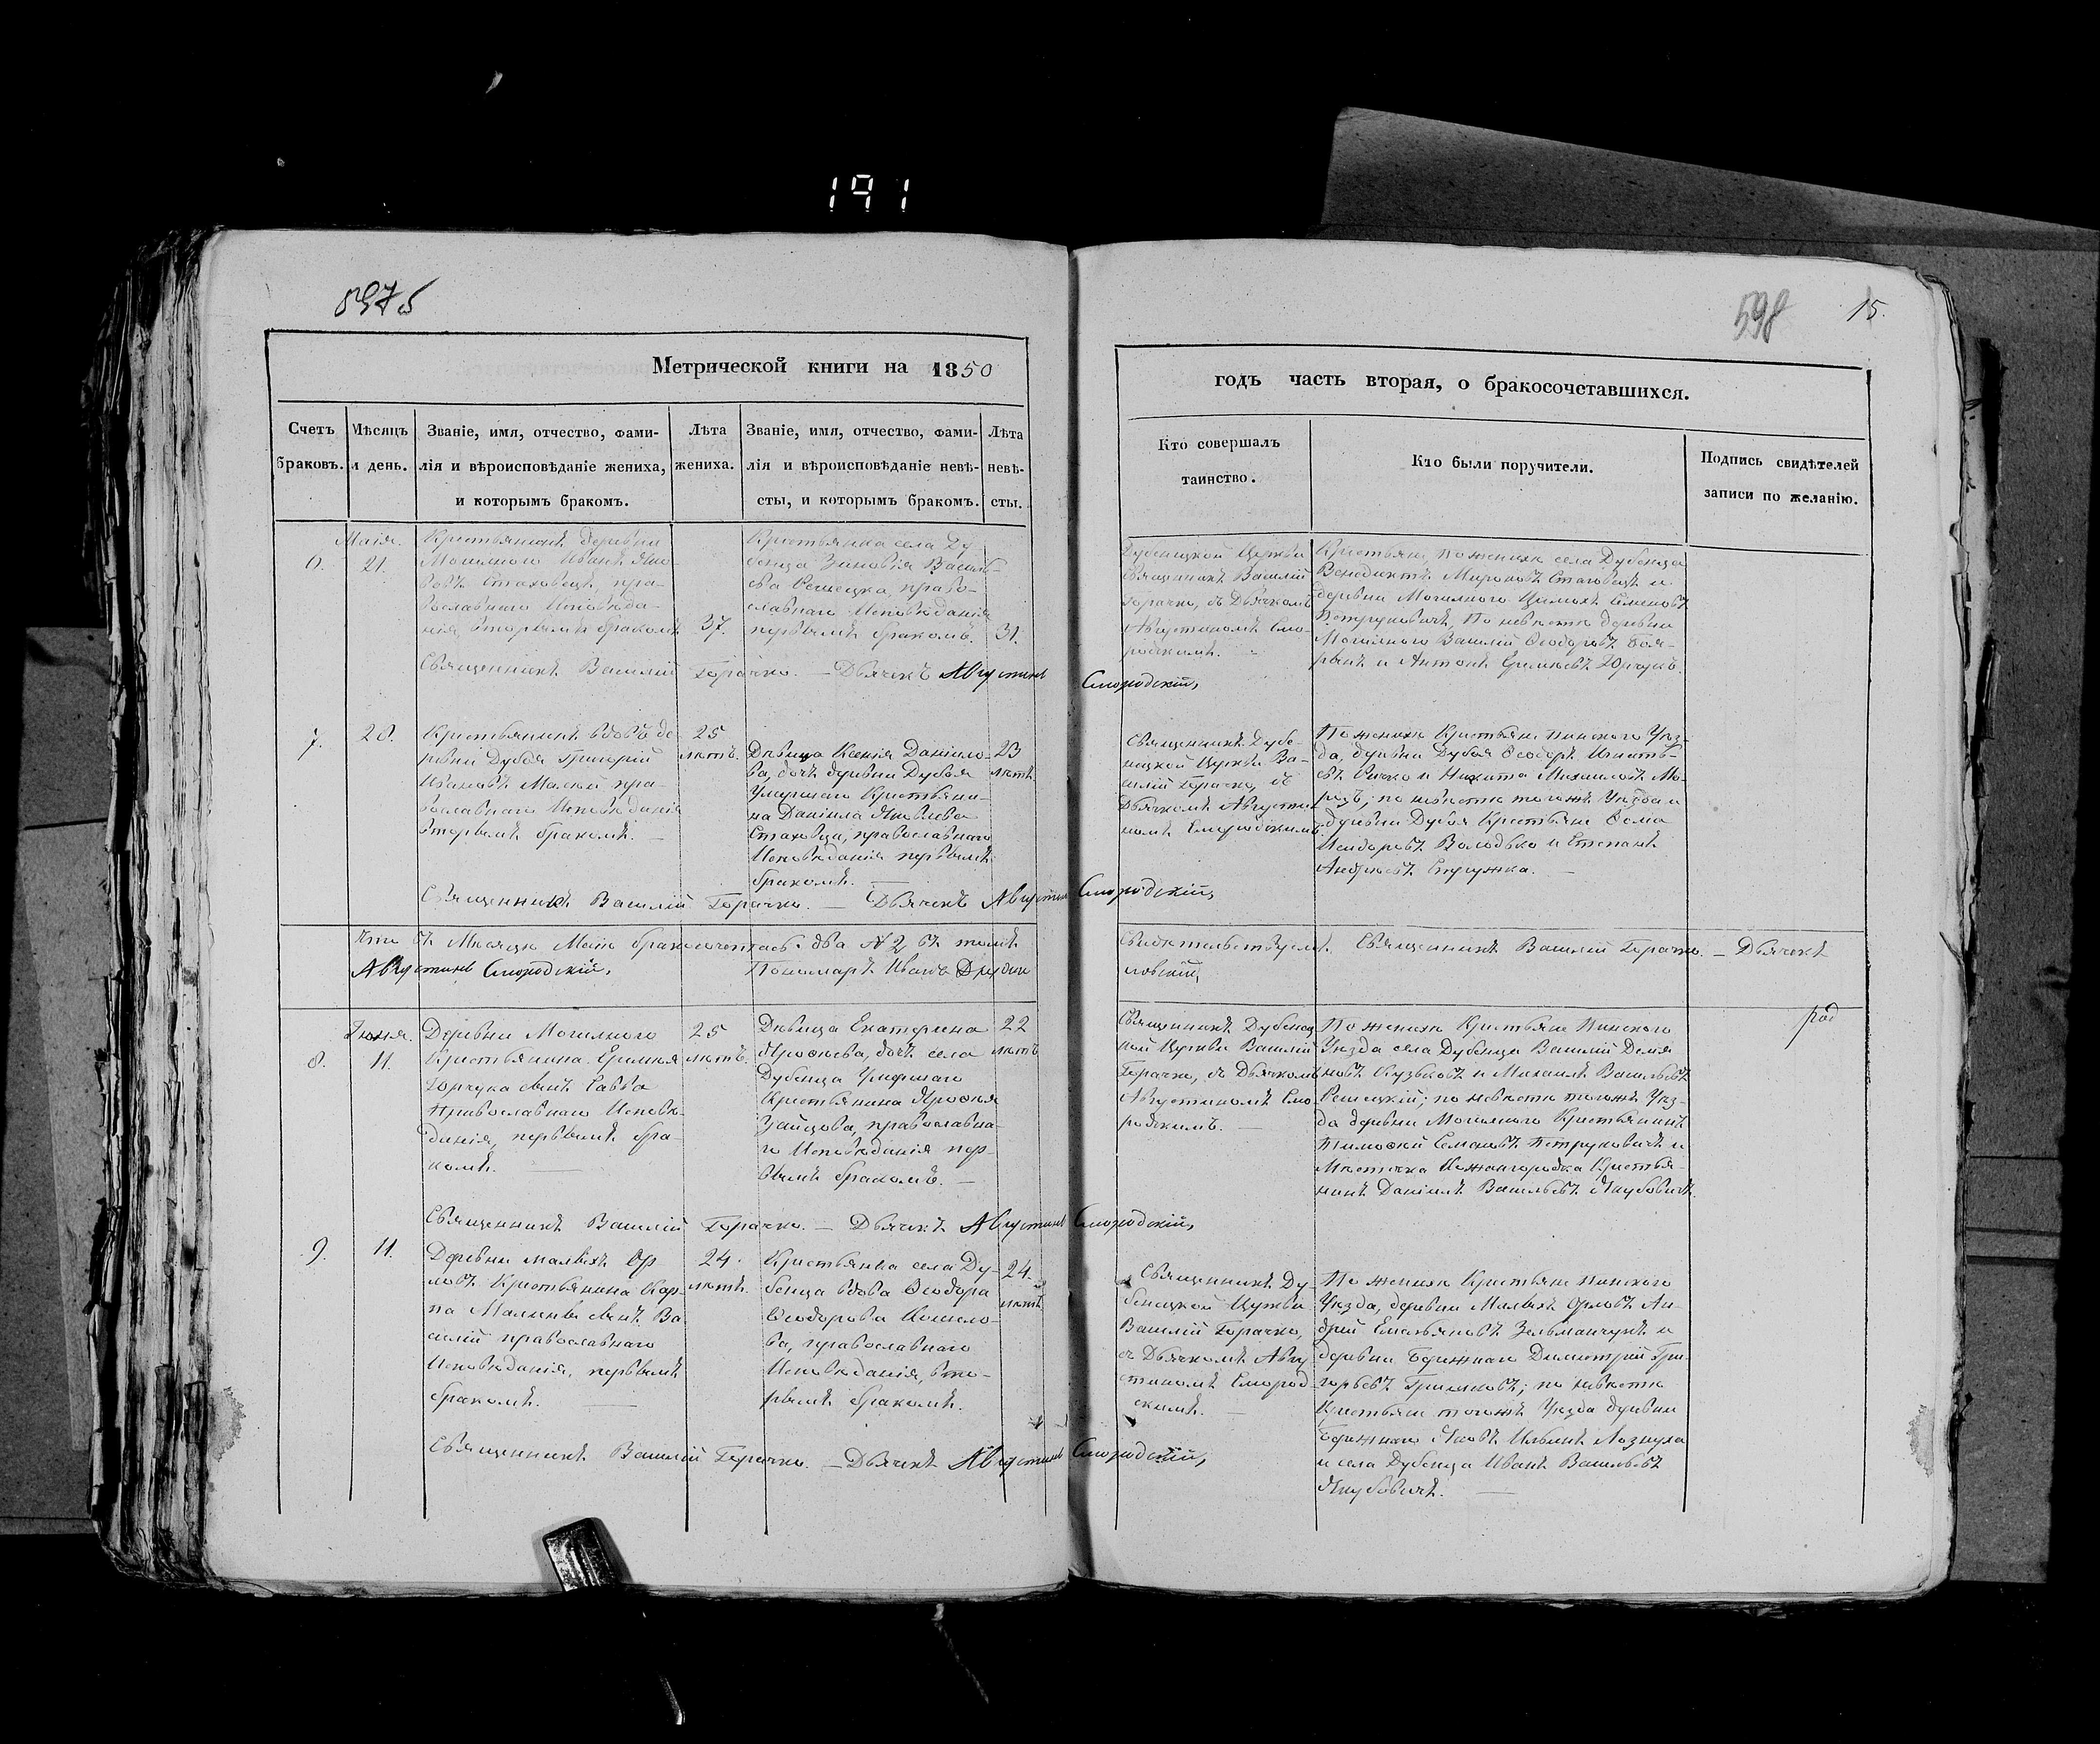 191
597б
598
15.
Метрической книги на 1850
годъ часть вторая, о бракосочетавшихся.
Счетъ браковъ.
Мѣсяцъ и день.
Званіе, имя, отчество, фами-
лія и вѣроисповѣданіе жениха,
и которымъ бракомъ.
Лѣта
жениха.
Званіе, имя, отчество, фами-
лія и вѣроисповѣданіе невѣ-
сты, и которымъ бракомъ.
Лѣта
невѣ-
сты.
Кто совершалъ
таинство.
Кто были поручители.
Подпись свидѣтелей
записи по желанію.
6.
Маія.
21.
Крестьянинъ деревни
Могилного Иванъ Яко-
вовъ Стаховецъ, пра-
вославнаго Исповѣда-
нія, вторымъ бракомъ
37.
Крестьянка села Ду-
бенца Зиновія Василь-
ева Решецка, право-
славнаго Исповѣданія
первымъ бракомъ.
31.
Дубенецкой Церкви
Священникъ Василій
Горачко, съ Дьячкомъ
Августиномъ Смо-
родскимъ.
Крестьяне, по женихѣ села Дубенца
Венедиктъ Мироновъ Стаховецъ и
деревни Могилного Семеновъ
Петруковичъ, По невѣстѣ деревни
Могилного Василій Ѳеодоровъ Боя-
ринъ и Антонъ Еремѣевъ Юрчукъ.
Священникъ Василій Горачко. — Дьячекъ Августинъ Смородскій,
7.
28.
Крестьянинъ вдовъ де-
ревни Дубоя Григорій
Ивановъ Малый пра-
вославнаго Исповѣданія
вторымъ бракомъ. —
25
лѣтъ.
Дѣвица Ксенія Данило-
ва, дочь деревни Дубоя
Умершаго Крестьяни-
на Даніила Яковлева
Стаховца, православнаго
Исповѣданія первымъ
бракомъ. —
23
лѣтъ.
Священникъ Дубе-
нецкой Церкви Ва-
силій Горачко, съ
Дьячкомъ Августи-
номъ Смородскимъ.
По женихѣ Крестьяне Пинского Уѣз-
да, деревни Дубоя Ѳеодоръ Игнать-
евъ и Никита Михаиловъ Мо-
розъ; по невѣстѣ тогожъ Уѣзда и
деревни Дубоя Крестьяне Ѳома
Исидоровъ Володько и Степанъ
Андреевъ
Священникъ Василій Горачко. — Дьячекъ Августинъ Смородскій,
Что въ Мѣсяцѣ Маіѣ бракосочеталось два № 2 въ томъ
Свидѣтельствуемъ. Священникъ Василій Горачко. — Дьячекъ
Августинъ Смородскій,
Пономарь Иванъ
ловскій,
8.
Іюня.
11.
Деревни Могилного
Крестьянина Еремѣя
Юрчука сынъ Савва
Православнаго Исповѣ-
данія, первымъ бра-
комъ. —
25
лѣтъ.
Дѣвица Екатерина
Ярофѣева, дочь села
Дубенца Умершаго
Крестьянина Ярофея
Зайцова, православна-
го Исповѣданія пер-
вымъ бракомъ. —
22
лѣтъ
Священникъ Дубенец-
кой Церкви Василій
Горачко, съ Дьячкомъ
Августиномъ Смо-
родскимъ. —
По женихѣ Крестьяне Пинского
Уѣзда села Дубенца Василій Демя-
новъ Кузьковъ и Михаилъ Васильевъ
Решецкій; по невѣстѣ тогожъ Уѣз-
да деревни Могилного Крестьянинъ
Тимофей Семеновъ Петруковичъ и
Мѣстечка Кожангородка Крестья-
нинъ Даніилъ Васильевъ Якубовичъ.
род
Священникъ Василій Горачко. — Дьячекъ Августинъ Смородскій,
9.
11.
Деревни малыхъ Ор-
ловъ Крестьянина Кар-
па сынъ Ва-
силій православнаго
Исповѣданія, первымъ
бракомъ. —
24.
лѣтъ.
Крестьянка села Ду-
бенца вдова Ѳеодора
Ѳеодорова
ва, православнаго
Исповѣданія, вто-
рымъ бракомъ.
24.
лѣтъ
Священникъ Ду-
бенецкой Церкви
Василій Горачко,
съ Дьячкомъ Авгу-
стиномъ Смород-
скимъ. —
По женихѣ Крестьяне Пинского
Уѣзда, деревни Малыхъ Орловъ Ан-
дрей Емельяновъ Зельманчукъ и
деревни Бережного Димитрій Гри-
горьевъ Гришковъ; по невѣстѣ
Крестьяне тогожъ Уѣзда деревни
Бережного Яковъ Ильинъ Лознуха
и села Дубенца Иванъ Васильевъ
Якубовичъ. —
Священникъ Василій Горачко. — Дьячекъ Августинъ Смородскій,